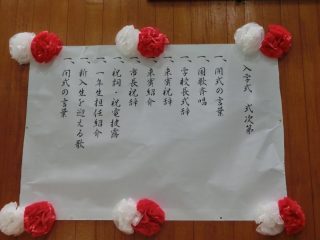 入学式　式次第
一、開式の言葉
一、国歌斉唱
一、学校長式辞
一、来賓祝辞
一、来賓紹介
一、市長祝辞
一、祝詞・祝電披露
一、一年生担任紹介
一、新入生を迎える歌
一、閉式の言葉